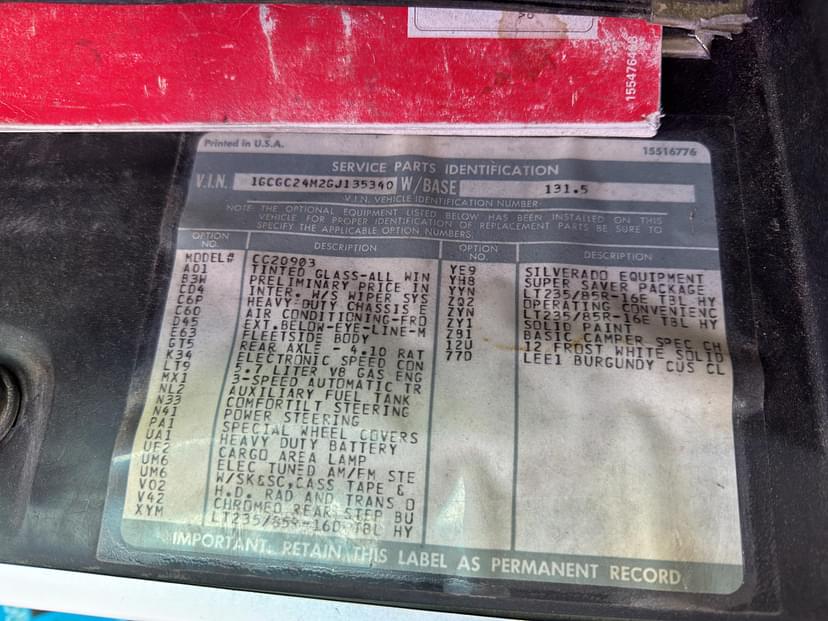 155476468
Printed in U.S.A. 15516776
SERVICE PARTS IDENTIFICATION
V.I.N. 1GCGC24M2GJ135340 W/BASE 131.5
V.I.N. VEHICLE IDENTIFICATION NUMBER
NOTE: THE OPTIONAL EQUIPMENT LISTED BELOW HAS BEEN INSTALLED ON THIS
VEHICLE FOR PROPER IDENTIFICATION OF REPLACEMENT PARTS BE SURE TO
SPECIFY THE APPLICABLE OPTION NUMBERS.
OPTION NO. DESCRIPTION OPTION NO. DESCRIPTION
MODEL# CC20903
A01 TINTED GLASS-ALL WIN
B3W PRELIMINARY PRICE IN
CD4 INTER. W/S WIPER SYS
C6P HEAVY-DUTY CHASSIS E
C60 AIR CONDITIONING-FRO
D45 EXT.BELOW-EYE-LINE-M
E63 FLEETSIDE BODY
GT5 REAR AXLE - 4.10 RAT
K34 ELECTRONIC SPEED CON
LT9 5.7 LITER V8 GAS ENG
MX1 3-SPEED AUTOMATIC TR
NL2 AUXILIARY FUEL TANK
N33 COMFORTILT STEERING
N41 POWER STEERING
PA1 SPECIAL WHEEL COVERS
UA1 HEAVY DUTY BATTERY
UF2 CARGO AREA LAMP
UM6 ELEC TUNED AM/FM STE
UM6 W/SK&SC,CASS TAPE &
V02 H.D. RAD AND TRANS O
V42 CHROMED REAR STEP BU
XYM LT235/85R-16D TBL HY
YE9 SILVERADO EQUIPMENT
YH8 SUPER SAVER PACKAGE
YYN LT235/85R-16E TBL HY
ZQ2 OPERATING CONVENIENC
ZYN LT235/85R-16E TBL HY
ZY1 SOLID PAINT
Z81 BASIC CAMPER SPEC CH
12U 12 FROST WHITE SOLID
77D LEE1 BURGUNDY CUS CL
IMPORTANT: RETAIN THIS LABEL AS PERMANENT RECORD